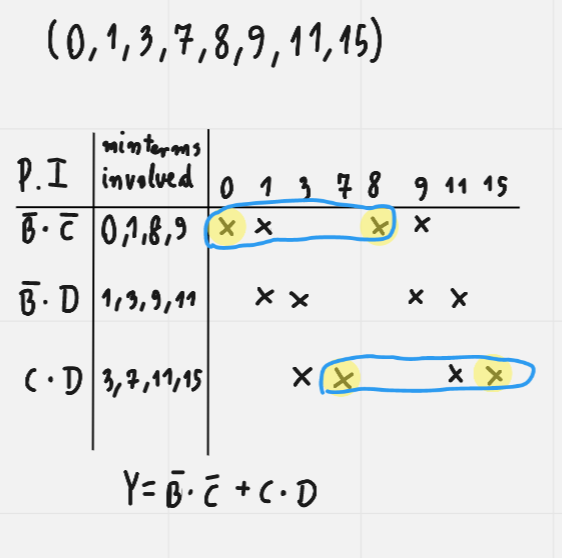 (0,1,3,7,8,9,11,15)
P.I minterms involved 0 1 3 7 8 9 11 15
B̅·C̅ 0,1,8,9 × × × ×
B̅·D 1,3,9,11 × × × ×
C·D 3,7,11,15 × × × ×
Y=B̅·C̅+C·D